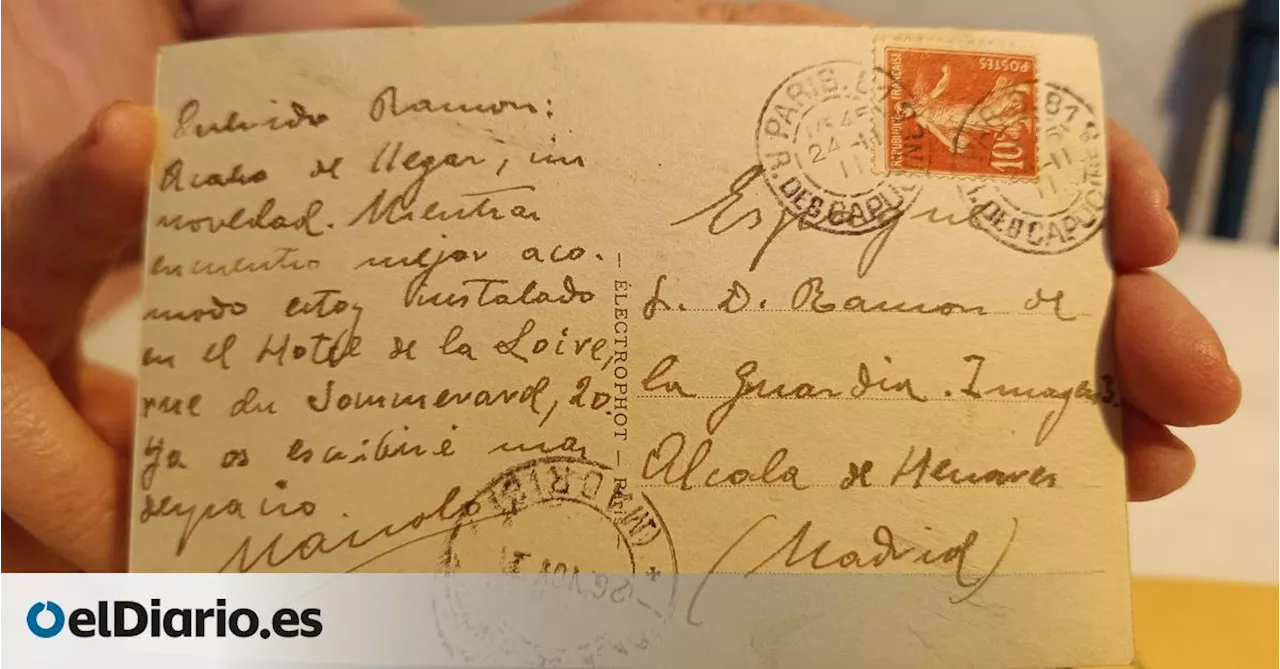 Querido Ramon:
Acabo de llegar, sin
novedad. Mientras
encuentro mejor aco-
modo estoy instalado
en el Hotel de la Loire,
rue du Sommerard, 20.
Ya os escribiré mas
despacio.
Manolo
— ÉLECTROPHOT — Paris
RÉPUBLIQUE FRANÇAISE
POSTES
10c
PARIS
24 -11
11
R. DES CAPUCINES
R. DES CAPUCINES
Espagne
S. D. Ramon de
la Guardia. Imagen 3.
Alcala de Henares
(Madrid)
(MADRID)
26 NOV
elDiario.es